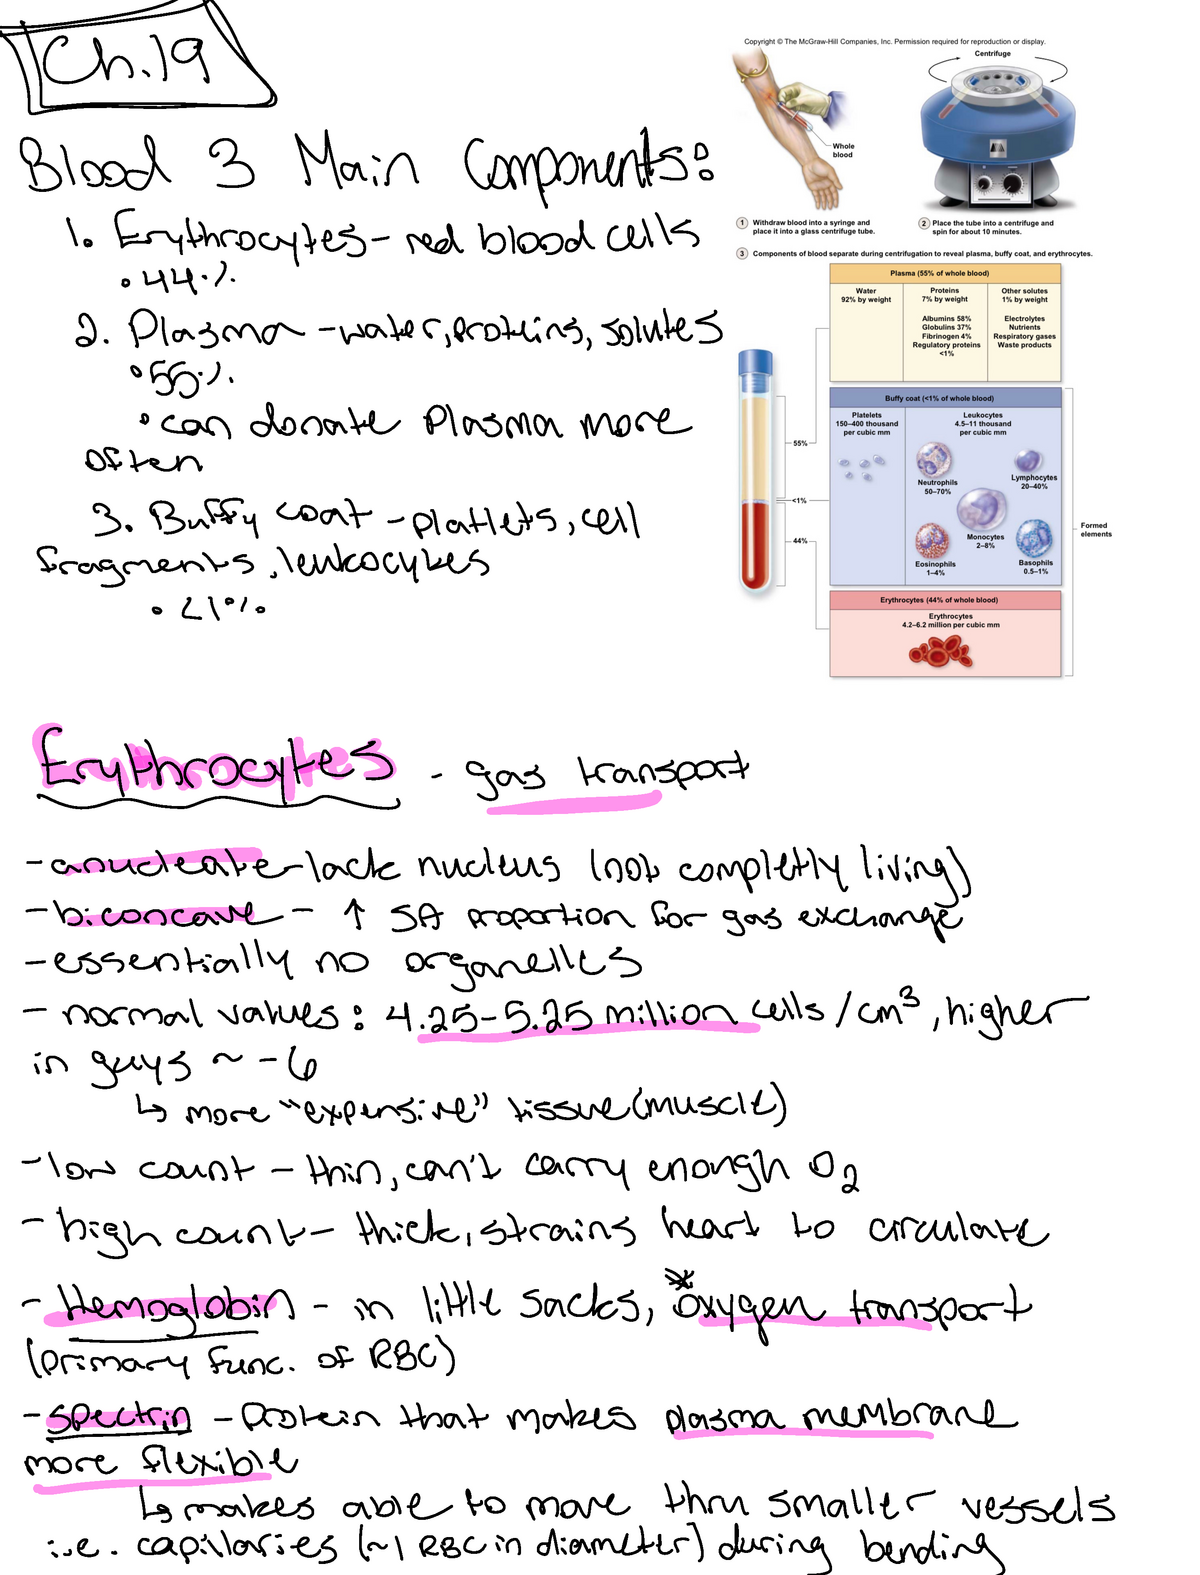 Ch.19
Blood 3 Main Components:
1. Erythrocytes - red blood cells
• 44%
2. Plasma - water, proteins, solutes
• 55%
• can donate plasma more
often
3. Buffy coat - platlets, cell
fragments, leukocytes
• <1%
Copyright © The McGraw-Hill Companies, Inc. Permission required for reproduction or display.
Centrifuge
Whole
blood
1 Withdraw blood into a syringe and
place it into a glass centrifuge tube.
2 Place the tube into a centrifuge and
spin for about 10 minutes.
3 Components of blood separate during centrifugation to reveal plasma, buffy coat, and erythrocytes.
Plasma (55% of whole blood)
Water
92% by weight
Proteins
7% by weight
Albumins 58%
Globulins 37%
Fibrinogen 4%
Regulatory proteins
<1%
Other solutes
1% by weight
Electrolytes
Nutrients
Respiratory gases
Waste products
Buffy coat (<1% of whole blood)
Platelets
150–400 thousand
per cubic mm
Leukocytes
4.5–11 thousand
per cubic mm
Neutrophils
50–70%
Lymphocytes
20–40%
Monocytes
2–8%
Eosinophils
1–4%
Basophils
0.5–1%
55%
<1%
44%
Formed
elements
Erythrocytes (44% of whole blood)
Erythrocytes
4.2–6.2 million per cubic mm
Erythrocytes - gas transport
- anucleate - lack nucleus (not completly living)
- biconcave - ↑ SA proportion for gas exchange
- essentially no organelles
- normal values: 4.25-5.25 million cells/cm³, higher
in guys ~ -6
↳ more "expensive" tissue (muscle)
- low count - thin, can't carry enough O₂
- high count - thick, strains heart to circulate
- Hemoglobin - in little sacks, *oxygen transport
(primary func. of RBC)
- Spectrin - protein that makes plasma membrane
more flexible
↳ makes able to move thru smaller vessels
i.e. capillaries (~1 RBC in diameter) during bending